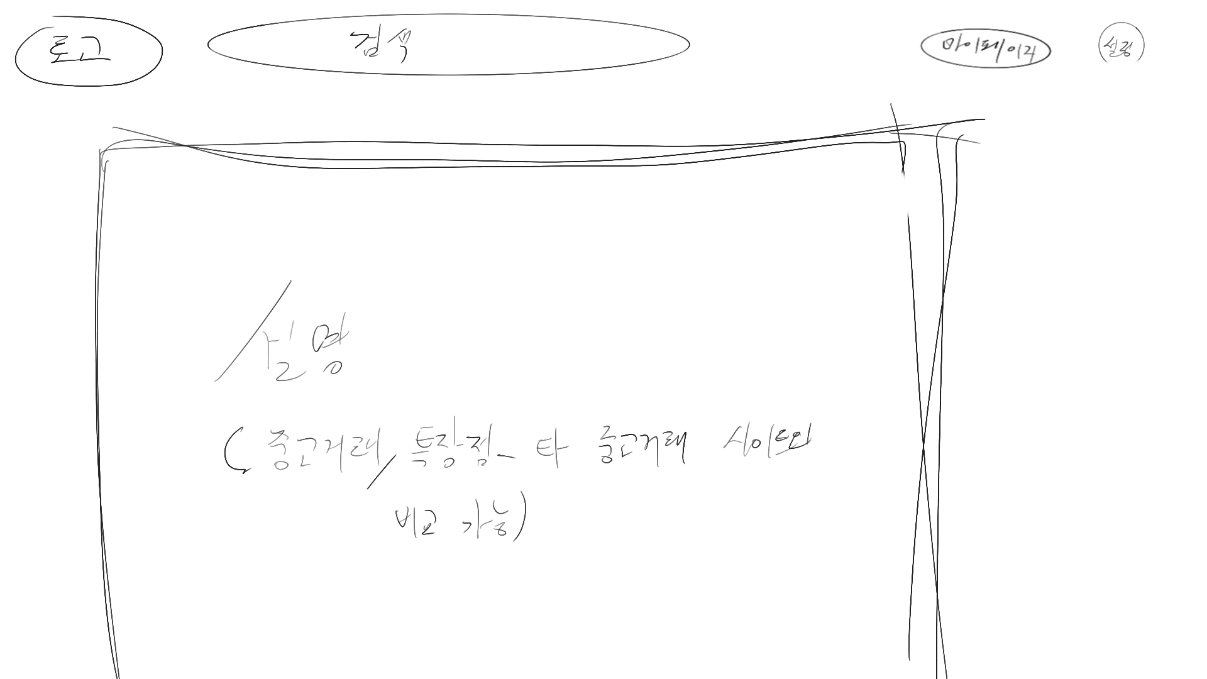 로고
검색
마이페이지
설정
설명
(중고거래, 특장점_ 타 중고거래 사이트와
비교 가능)